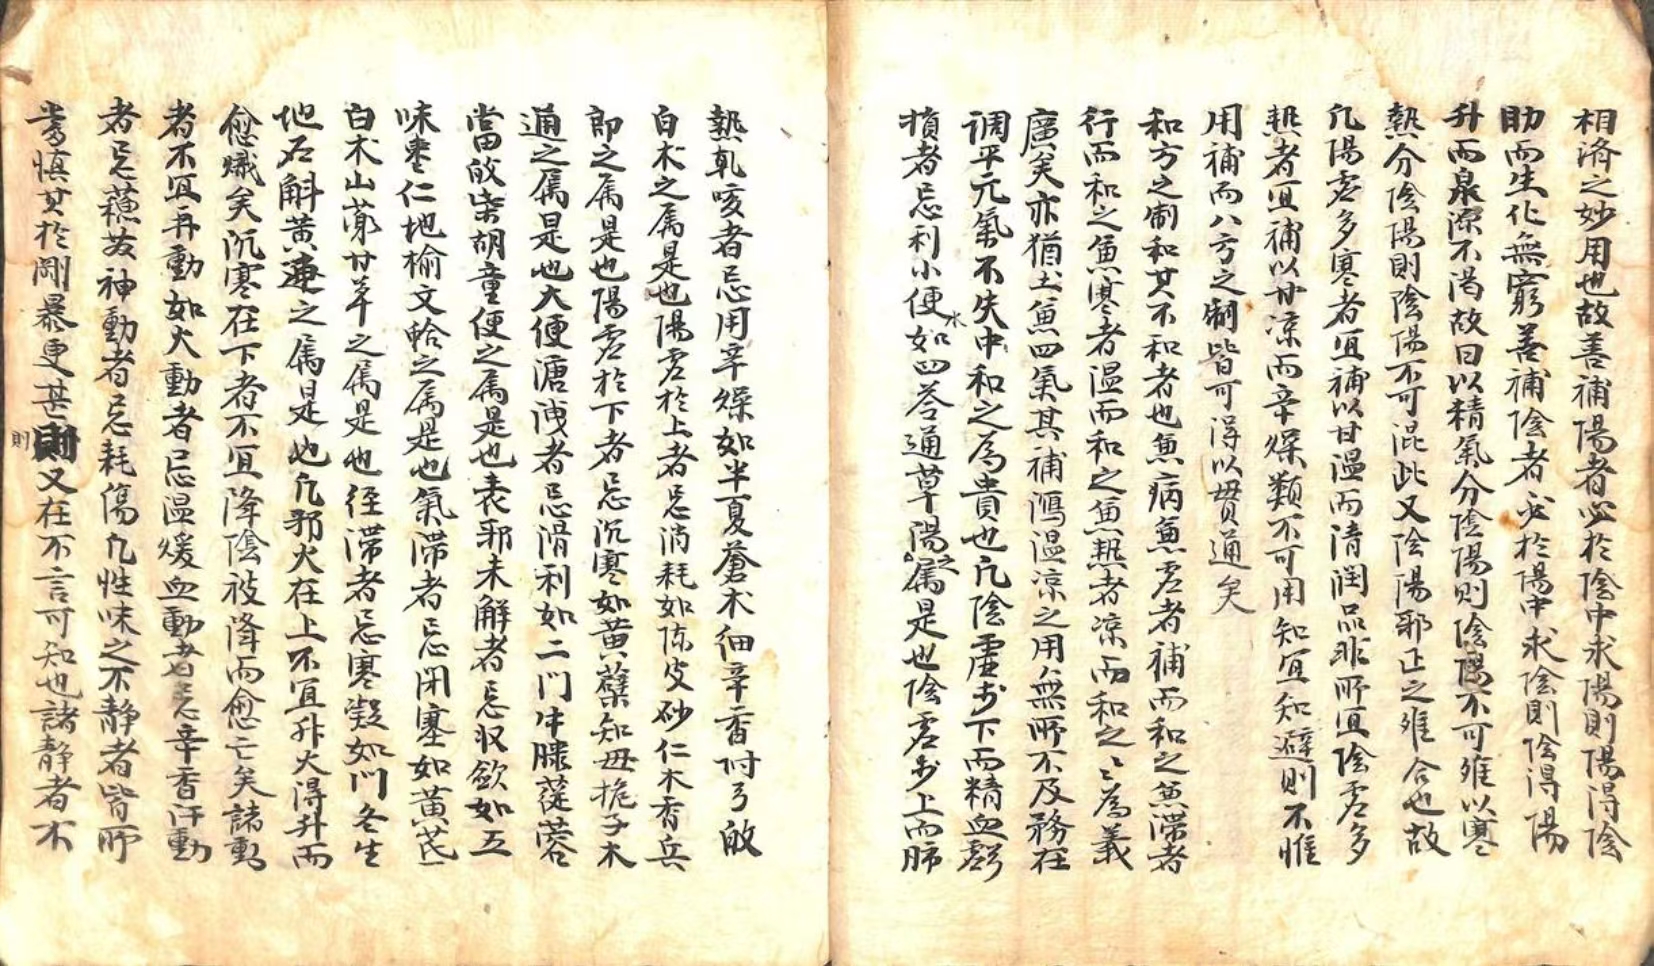 相濟之妙用也故善補陽者必於陰中求陽則陽得陰
助而生化無窮善補陰者必於陽中求陰則陰得陽
升而泉源不渴故曰以精氣分陰陽則陰陽不可離以寒
熱分陰陽則陰陽不可混此又陰陽邪正之離合也故
凡陽虛多寒者宜補以甘溫而清潤品非所宜陰虛多
熱者宜補以甘凉而辛燥類不可用知宜知避則不惟
用補而八方之制皆可得以貫通矣
和方之制和其不和者也魚病魚虛者補而和之魚滯者
行而和之魚寒者溫而和之魚熱者凉而和之〻為義
廣矣亦猶土魚四氣其補瀉溫凉之用無所不及務在
調平元氣不失中和之為貴也凡陰虛於下而精血虧
損者忌利小便如四苓通草湯之属是也陰虛於上而肺
水
熱乾咳者忌用辛燥如半夏蒼朮細辛香附弓歸
白朮之属是也陽虛於上者忌消耗如陳皮砂仁木香兵
郎之属是也陽虛於下者忌沉寒如黃蘗知母梔子木
通之属是也大便溏泄者忌滑利如二門牛膝蓯蓉
當歸柴胡童便之属是也表邪未解者忌収歛如五
味棗仁地榆文蛤之属是也氣滯者忌閉塞如黃芪
白朮山藥甘草之属是也經滯者忌寒凝如門冬生
地石斛黃連之属是也凡邪火在上不宜升火得升而
愈熾矣沉寒在下者不宜降陰被降而愈亡矣諸動
者不宜再動如火動者忌溫煖血動者忌辛香汗動
者忌蘓散神動者忌耗傷凡性味之不靜者皆所
當慎其於剛暴更甚則又在不言可知也諸靜者不
則